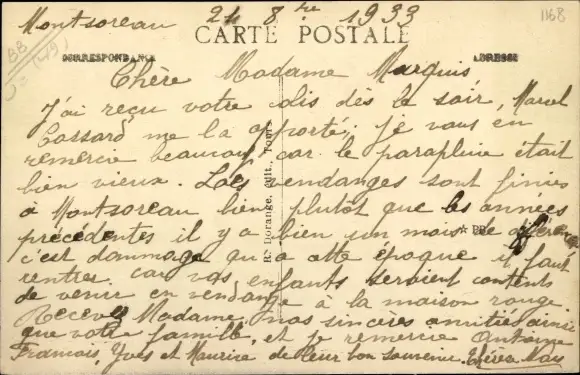 Montsoreau 24 8bre 1933
1168
CARTE POSTALE
CORRESPONDANCE
ADRESSE
Chère Madame Marquis
J'ai reçu votre colis dès le soir, Marcel
Cossard me la apporté. je vous en
remercie beaucoup car le parapluie était
bien vieux. Les vendanges sont finies
à Montsoreau bien plutôt que les années
précédentes il y a bien un mois de
c'est dommage qu'a cette époque il faut
rentrer car vos enfants seraient contents
de venir en vendange à la maison rouge.
Recevez Madame, nos sincères amitiés ainsi
que votre famille, et je remercie Antoine
François, Yves et Maurice de leur bon souvenir.
R. Dorange, édit., Tours